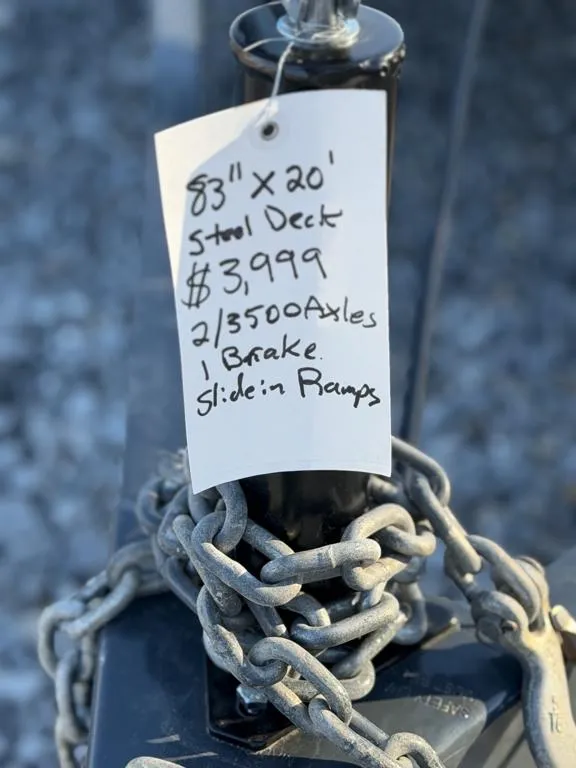 83" x 20'
Steel Deck
$3,999
2/3500 Axles
1 Brake.
Slide in Ramps
SAFETY